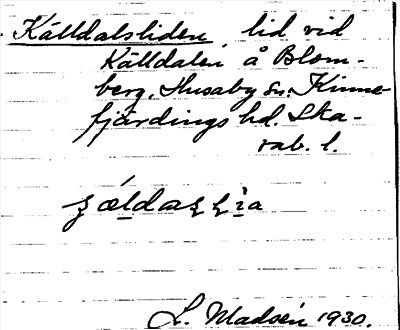 Källdalsliden, lid vid
Källdalen å Blom-
berg, Husaby sn. Kinne
fjärdings hd. Ska-
rab. l.
L. Madsén 1930.